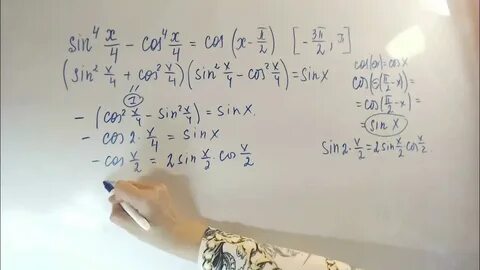 sin⁴ x/4 − cos⁴ x/4 = cos (x − π/2) [−3π/2, π]
(sin² x/4 + cos² x/4)(sin² x/4 − cos² x/4) = sin x
1
− (cos² x/4 − sin² x/4) = sin x.
− cos 2 · x/4 = sin x
− cos x/2 = 2 sin x/2 · cos x/2
cos(-x) = cos x
cos(-(π/2 − x)) =
= cos(π/2 − x) =
= sin x
sin 2 · x/2 = 2 sin x/2 cos x/2.